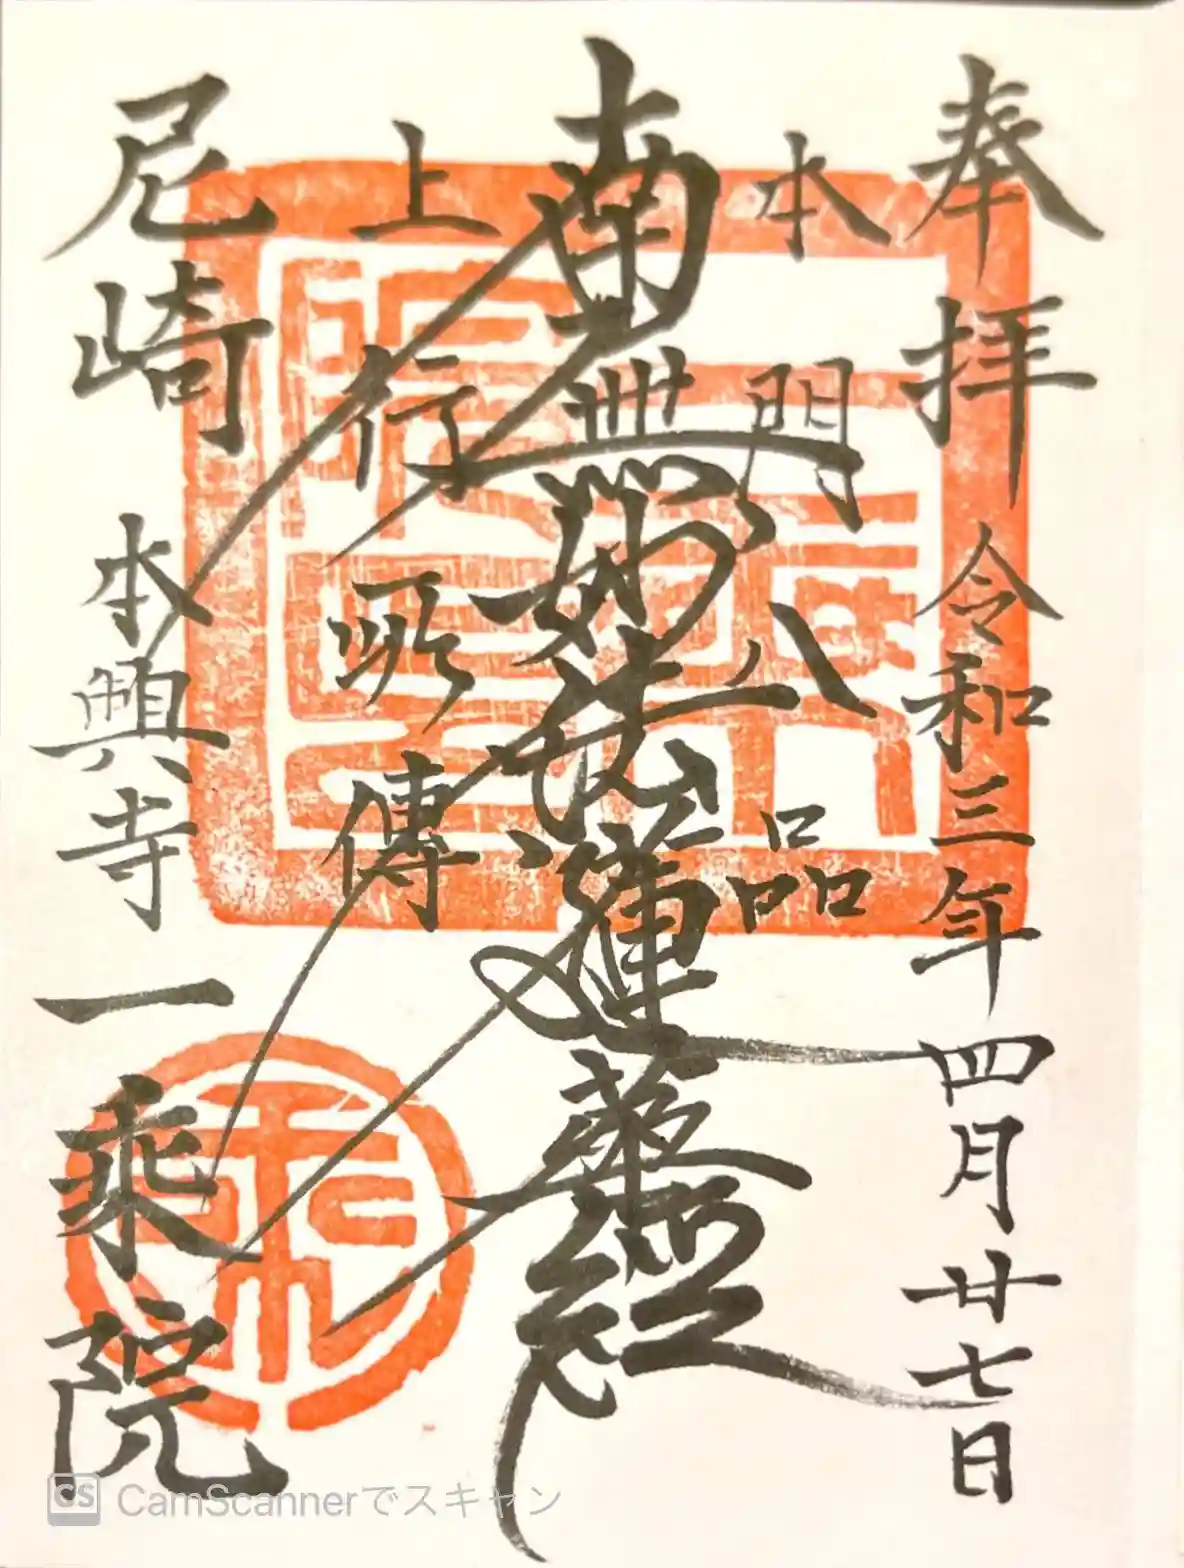 奉拝 令和三年四月廿七日
本門八品
南無妙法蓮華經
上行所傳
尼崎 本興寺 一乘院
CS CamScannerでスキャン